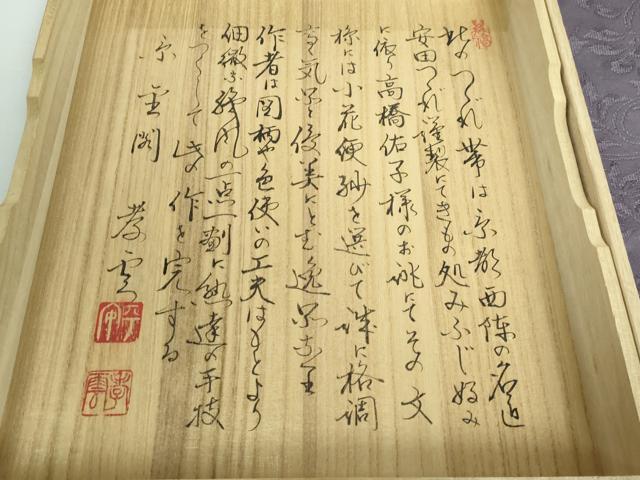 此のつゞれ帯は京都西陣の名匠
安田つゞれ謹製にてきもの処みふじ好み
に依り高橋佑子様のお誂にてその文
様には小花便紗を選びて誠に格調
高く気品と優美にとむ逸品なり
作者は図柄や色使いの工夫はもとより
細微な綾爪の一点一劃に熟達の手技
をつくして此の作を完する
京 金閣 孝雲